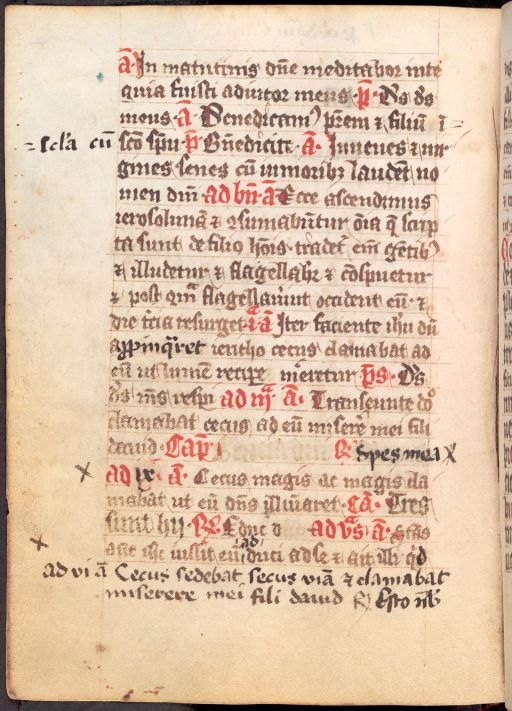 a̅ In matutinis dn̅e meditabor in te
quia fuisti adiutor meus p̅ Ds ds
meus a̅ Benedicam⁹ p̅rem ⁊ filiu̅ i̅
scl'a cu̅
sc̅o sp̅u p̅ Bn̅edicite a̅ Iuuenes ⁊ uir
gines senes cu̅ iunioribz laude̅t no
men dn̅i ad bn̅ a̅ Ecce ascendimus
ierosolima̅ ⁊ ꝯsumabu̅tur o̅ia q̅ scrip
ta sunt de filio ho̅is tradet᷑ eni̅ ge̅tib⁹
⁊ illudetur ⁊ flagellab᷑r ⁊ co̅spuetur
⁊ postqm̅ flagellau̅int occident eu̅ ⁊
die t̅cia resurget i a̅ Iter faciente ihu̅ du̅
appinq̅ret iericho cecus clamabat ad
eu̅ ut lume̅ recip̅e m̅eretur p̅s Ds
ds m̅s respi ad iij a̅ Transeunte dn̅o
clamabat cecus ad eu̅ misere̅ mei fili
dauid Cap̅ R̸ Spes mea
ad ix a̅ Cecus magis ac magis cla
mabat ut eu̅ dn̅s illu̅i̅aret ca̅ Tres
sunt hij R̸ Educ d ad vs̅ a̅ Sta̅s
aut̅ ihc iussit eu̅ duci ad se ⁊ ait illi qd
ad vi a̅ Cecus sedebat secus via̅ ⁊ clamabat
miserere mei fili dauid R̸ Esto nb̅